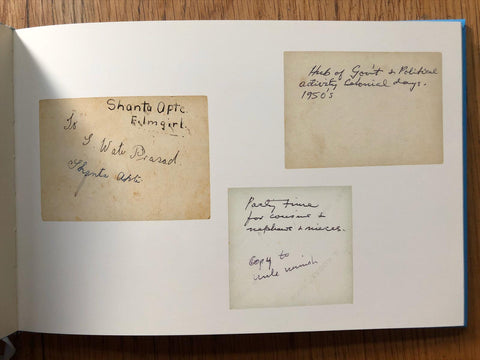 Shanta Apte.
Filmgirl.
To
S. Wati Prasad
Shanta Apte.
Hub of Gov't & Political
activity Colonial days.
1950's
Party time
for cousins &
nephews & nieces.
Copy to
uncle